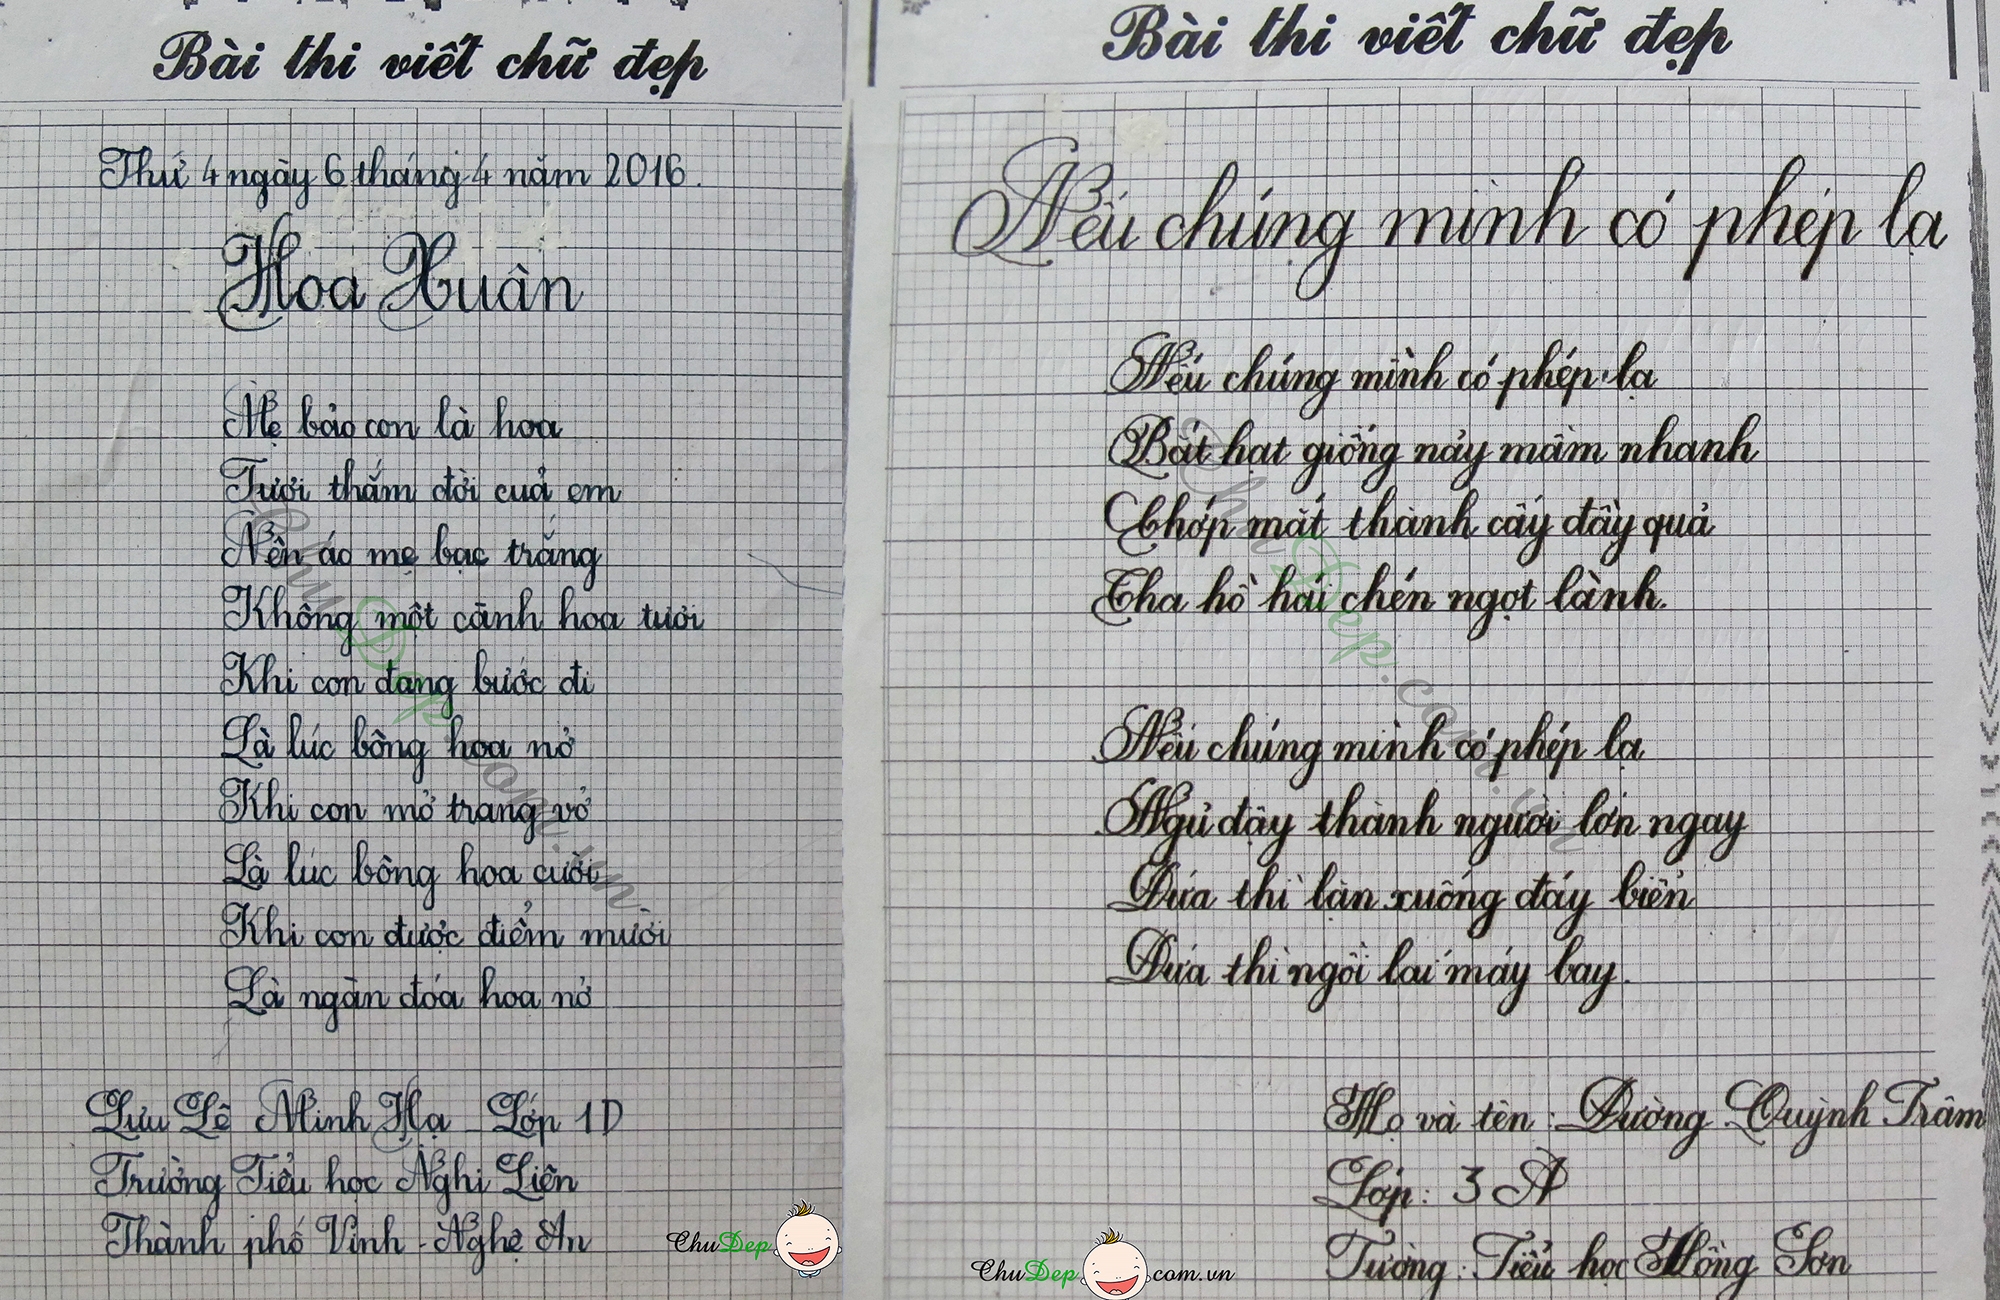 Bài thi viết chữ đẹp
Thứ 4 ngày 6 tháng 4 năm 2016.
Hoa Xuân
Mẹ bảo con là hoa
Tươi thắm đời của em
Nên áo mẹ bạc trắng
Không một cành hoa tươi
Khi con đang bước đi
Là lúc bông hoa nở
Khi con mở trang vở
Là lúc bông hoa cười
Khi con được điểm mười
Là ngàn đóa hoa nở
Lưu Lê Minh Hạ - Lớp 1D
Trường Tiểu học Nghi Liên
Thành phố Vinh - Nghệ An
ChuDep
ChuDep.com.vn
Bài thi viết chữ đẹp
Nếu chúng mình có phép lạ
Nếu chúng mình có phép lạ
Bắt hạt giống nảy mầm nhanh
Chớp mắt thành cây đầy quả
Tha hồ hái chén ngọt lành.
Nếu chúng mình có phép lạ
Ngủ dậy thành người lớn ngay
Đứa thì lặn xuống đáy biển
Đứa thì ngồi lái máy bay.
Họ và tên : Đường Quỳnh Trâm
Lớp : 3 A
Tường : Tiểu học Hồng Sơn
ChuDep.com.vn
ChuDep.com.vn